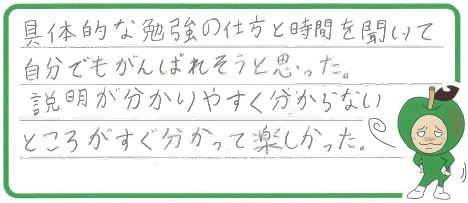 具体的な勉強の仕方と時間を聞いて
自分でもがんばれそうと思った。
説明が分かりやすく分からない
ところがすぐ分かって楽しかった。